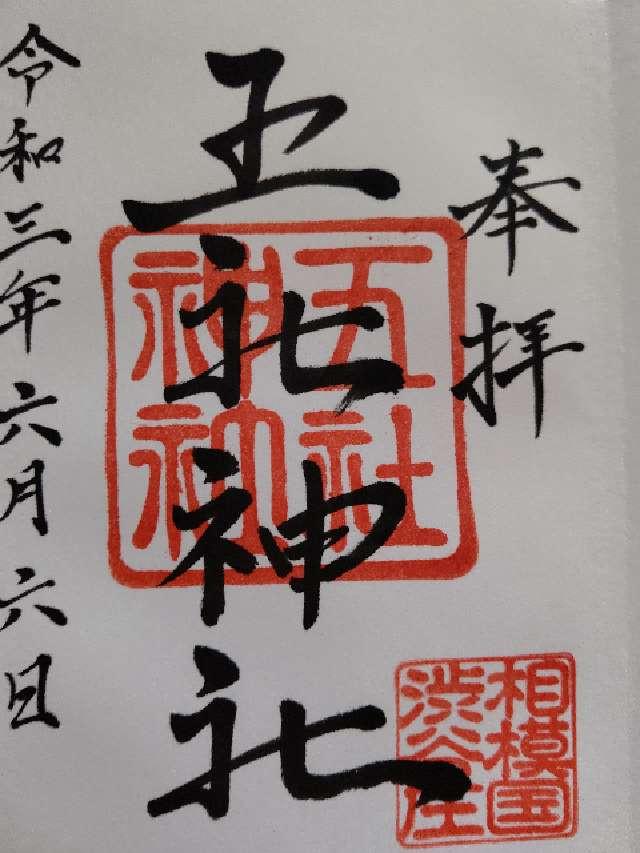 奉拝
五社神社
令和三年六月六日
五社
神社
相模国
渋谷庄